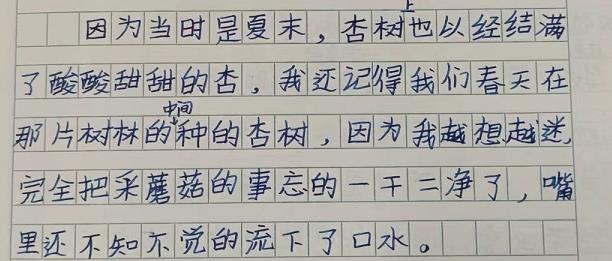 因为当时是夏末，杏树上也以经结满
了酸酸甜甜的杏，我还记得我们春天在
那片树林的中间种的杏树，因为我越想越迷，
完全把采蘑菇的事忘的一干二净了，嘴
里还不知不觉的流下了口水。